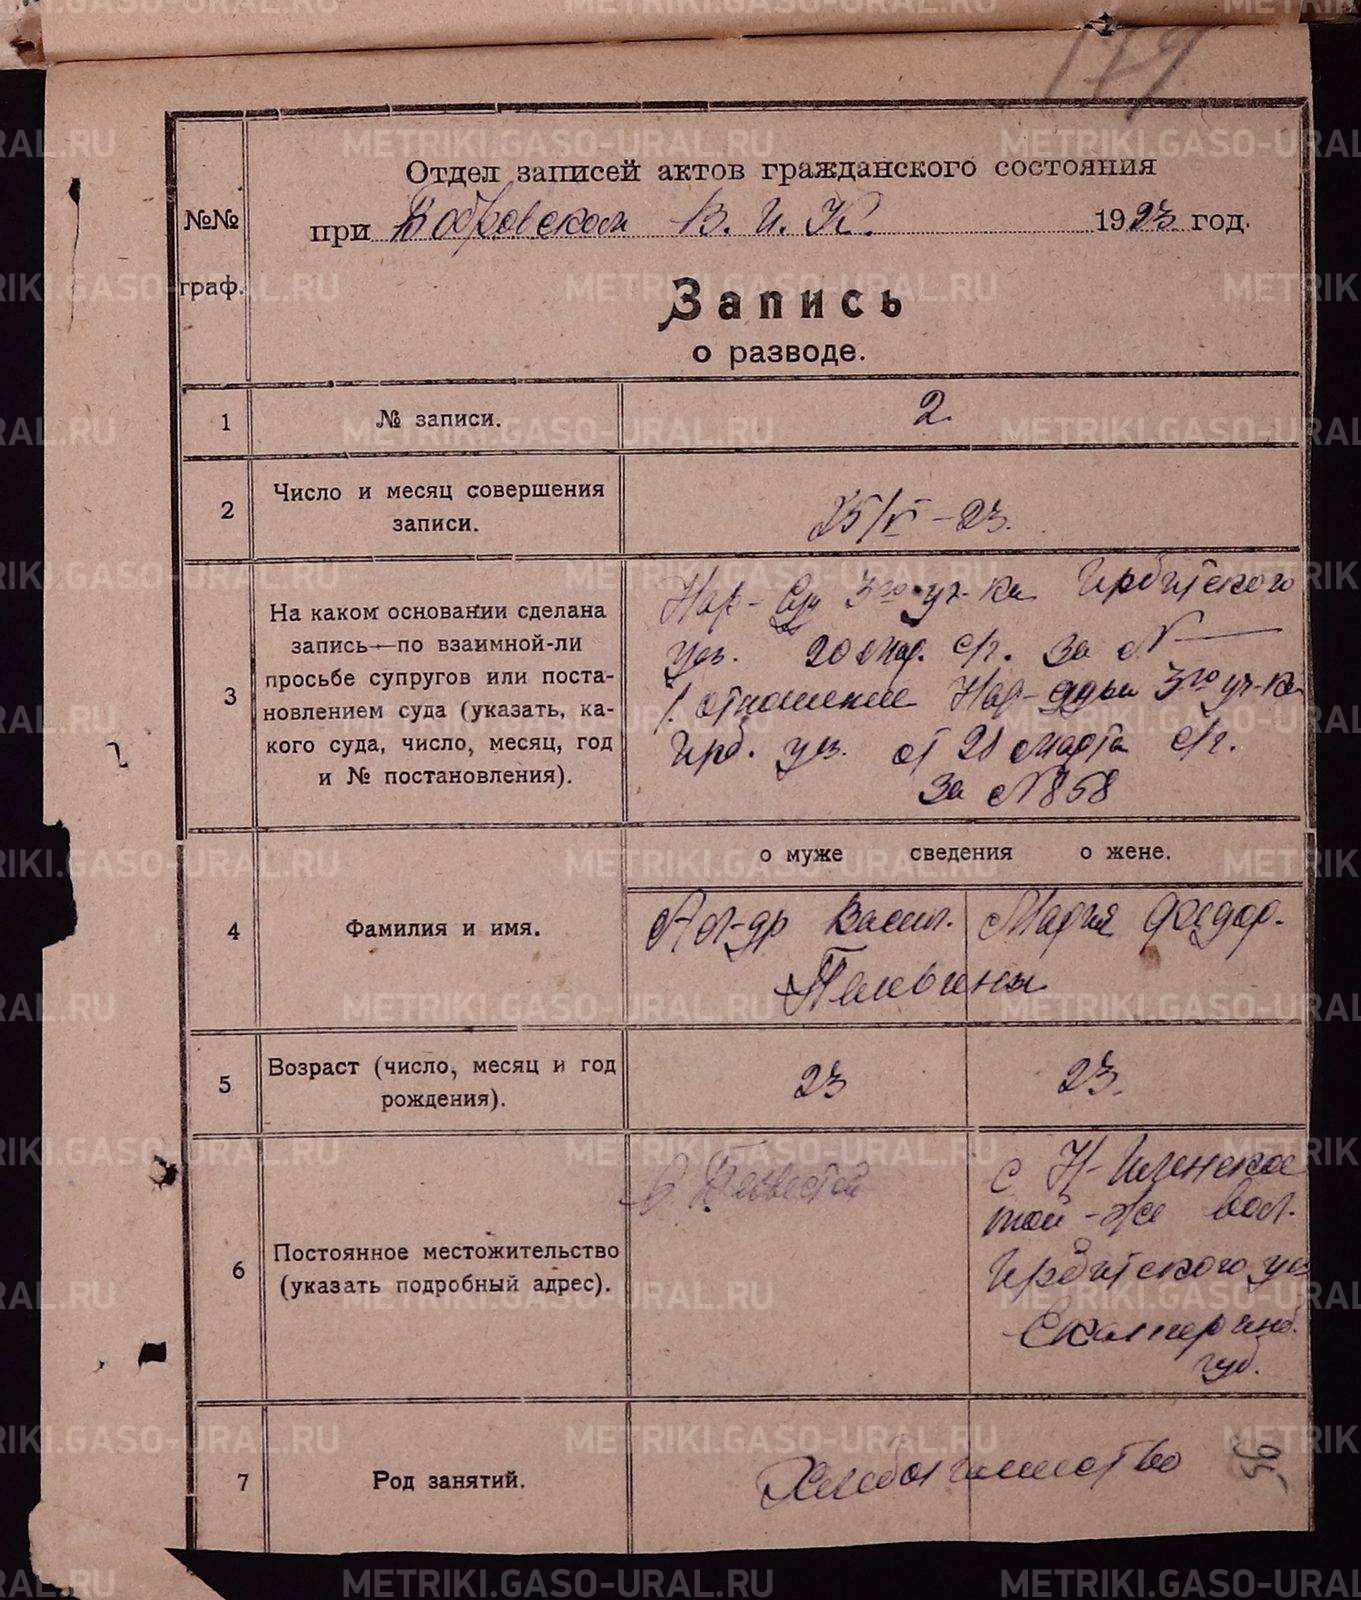 179
Отдел записей актов гражданского состояния
при Бобровском В. И. К. 1923 год.
№№ граф.
Запись
о разводе.
1 № записи. 2
2 Число и месяц совершения записи. 25/VI-23.
3 На каком основании сделана
запись—по взаимной-ли
просьбе супругов или поста-
новлением суда (указать, ка-
кого суда, число, месяц, год
и № постановления).
Нар-Суд 3го уч-ка Ирбитского
уез. 20 мар. с/г. за №
отношение Нар-судьи 3го уч-ка
Ирб. уез. от 21 марта с/г.
за №858
о муже сведения о жене.
4 Фамилия и имя.
Ал-др Васил. Мария Федор.
5 Возраст (число, месяц и год
рождения).
23 23.
6 Постоянное местожительство
(указать подробный адрес).
с Н-Иленское
той-же вол.
Ирбитского уез
Екатеринб.
губ.
7 Род занятий. Хлебопашество
56
METRIKI.GASO-URAL.RU